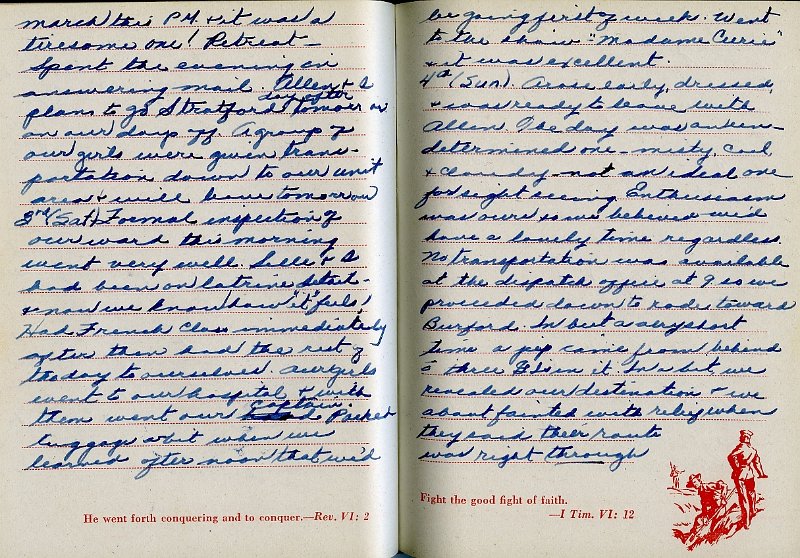 march this P.M. & it was a
tiresome one! Retreat —
Spent the evening in
answering mail. Allen & I
day after
plans to go Stratford tomor on
on our days off. A group of
our girls were given trans-
portation down to our unit
area & will leave tomorrow
3rd (Sat) Formal inspection of
our ward this morning
went very well. & I
had been on latrine detail -
& now we know how "it" feels!
Had French Class immediately
after then had the rest of
the day to ourselves. Our girls
went to our hospital & with
them went our Captain. Packed
luggage a bit when we
learned after noon that we'd
be going first of week. Went
to the show "Madame Curie"
& it was excellent.
4th (Sun) Arose early, dressed,
& was ready to leave with
Allen. The day was an un-
determined one - misty, cool
& cloudy - not an ideal one
for sight seeing. Enthusiasm
was ours so we believed we'd
have a lovely time regardless.
No transportation was available
at the dispatch office at 9 so we
proceeded down to road toward
Burford. In but a very short
time a jep came from behind
c̄ three GIs in it. In a bit we
revealed our destination & we
about fainted with relief when
they said their route
was right through
He went forth conquering and to conquer.—Rev. VI: 2
Fight the good fight of faith.
—I Tim. VI: 12